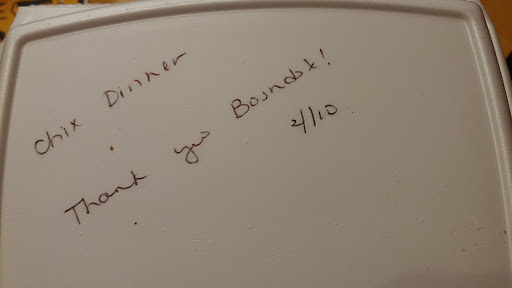 Chix Dinner
Thank you
2/10